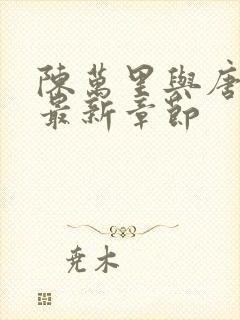 陳萬里與唐
最新章節
尭木